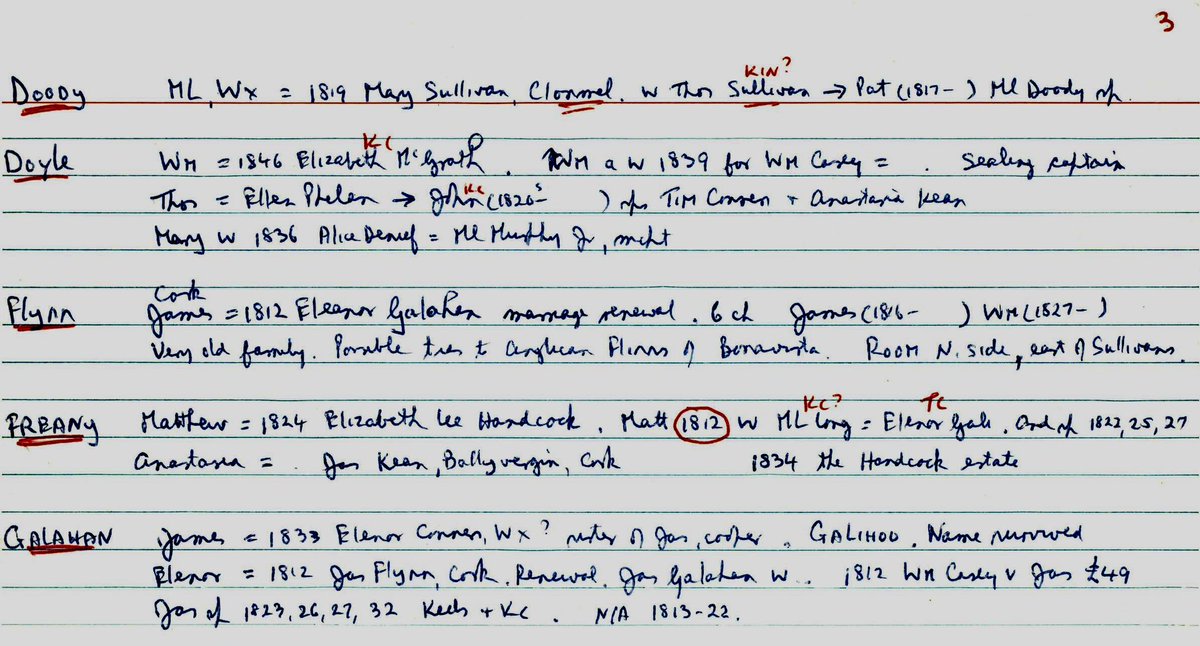 3
KIN?
Doody ML, Wx = 1819 Mary Sullivan, Clonmel. w Thos Sullivan → Pat (1817- ) Ml Doody sp.
KC
Doyle Wm = 1846 Elizabeth McGrath. Wm a w 1839 for Wm Casey = . Sealing captain
Thos = Ellen Phelan → John KC (1820s- ) sps Tim Connen + Anastasia Kean
Mary w 1836 Alice Denief = Ml Murphy Jr, mcht
Cork
Flynn James = 1812 Eleanor Galahen marriage renewal. 6 ch James (1816- ) Wm (1827- )
Very old family. Possible ties to Anglican Flinns of Bonavista. Room N. side, east of Sullivans.
KC? TC
FREANY Matthew = 1824 Elizabeth Lee Handcock, Matt 1812 w ML Long = Elenor Gale. And sp 1822, 25, 27
Anastasia = . Jas Kean, Ballyvergin, Cork 1834 the Handcock estate
GALAHAN James = 1833 Elenor Connen, Wx? sister of Jas, cooper. GALIHOO. Name survived
Elenor = 1812 Jas Flynn, Cork. Renewal. Jas Galahen w.. 1812 Wm Casey v Jas £49
Jas sp 1823, 26, 27, 32 Keels + KC. N/A 1813-22.